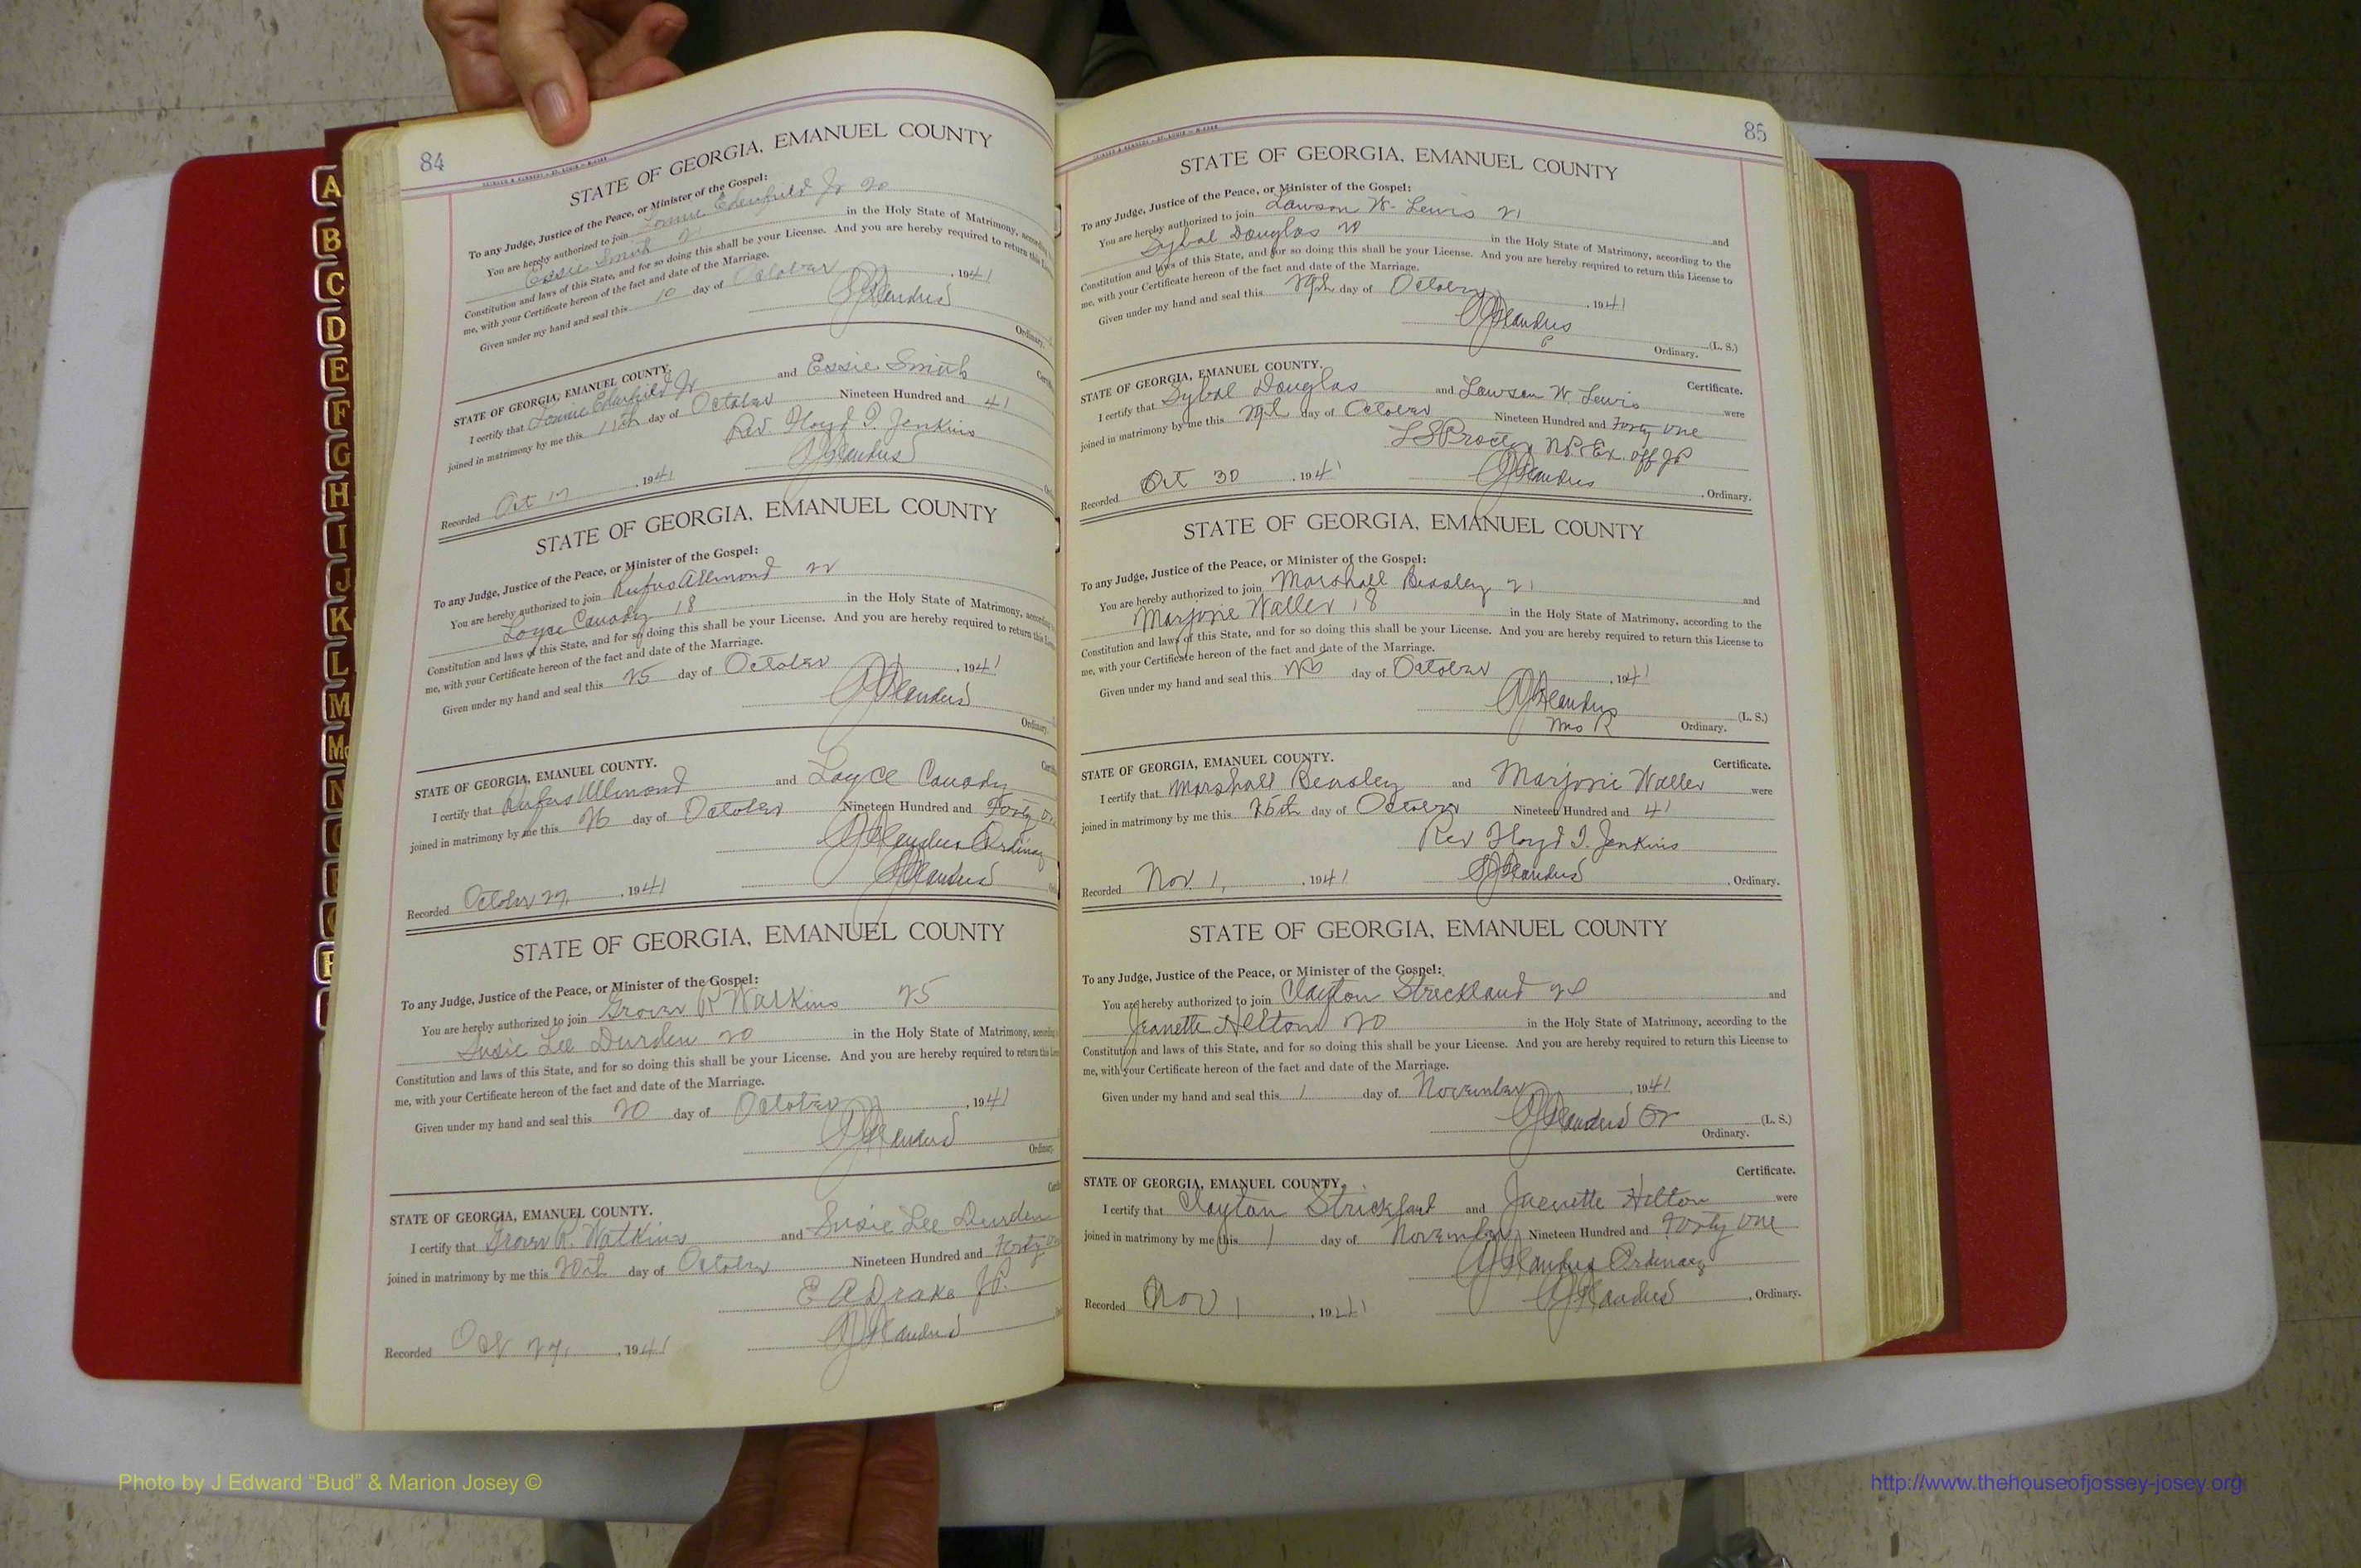 84
STATE OF GEORGIA, EMANUEL COUNTY
To any Judge, Justice of the Peace, or Minister of the Gospel:
You are hereby authorized to join Lonnie Edenfield Jr 20
Essie Smith 21 in the Holy State of Matrimony, according
Constitution and laws of this State, and for so doing this shall be your License. And you are hereby required to return this
me, with your Certificate hereon of the fact and date of the Marriage.
Given under my hand and seal this 10 day of October, 1941
Ordinary.
STATE OF GEORGIA, EMANUEL COUNTY.
I certify that Lonnie Edenfield Jr and Essie Smith
joined in matrimony by me this 11th day of October Nineteen Hundred and 41
Rev. Floyd I. Jenkins
Recorded Oct 17, 1941
STATE OF GEORGIA, EMANUEL COUNTY
To any Judge, Justice of the Peace, or Minister of the Gospel:
You are hereby authorized to join Rufus Allmond 22
Loyce Canady 18 in the Holy State of Matrimony, according
Constitution and laws of this State, and for so doing this shall be your License. And you are hereby required to return this
me, with your Certificate hereon of the fact and date of the Marriage.
Given under my hand and seal this 25 day of October, 1941
Ordinary.
STATE OF GEORGIA, EMANUEL COUNTY.
I certify that Rufus Allmond and Loyce Canady
joined in matrimony by me this 26 day of October Nineteen Hundred and Forty
Ordinary
Recorded October 27, 1941
STATE OF GEORGIA, EMANUEL COUNTY
To any Judge, Justice of the Peace, or Minister of the Gospel:
You are hereby authorized to join Grover R Watkins 25
Susie Lee Durden 20 in the Holy State of Matrimony, according
Constitution and laws of this State, and for so doing this shall be your License. And you are hereby required to return this
me, with your Certificate hereon of the fact and date of the Marriage.
Given under my hand and seal this 20 day of October, 1941
Ordinary
STATE OF GEORGIA, EMANUEL COUNTY.
I certify that Grover R. Watkins and Susie Lee Durden
joined in matrimony by me this 20th day of October Nineteen Hundred and Forty
E A Drake J.P.
Recorded Oct 27, 1941
85
STATE OF GEORGIA, EMANUEL COUNTY
To any Judge, Justice of the Peace, or Minister of the Gospel:
You are hereby authorized to join Lawson W. Lewis 21 and
Sybal Douglas 20 in the Holy State of Matrimony, according to the
Constitution and laws of this State, and for so doing this shall be your License. And you are hereby required to return this License to
me, with your Certificate hereon of the fact and date of the Marriage.
Given under my hand and seal this 29th day of October, 1941
(L. S.)
Ordinary.
STATE OF GEORGIA, EMANUEL COUNTY. Certificate.
I certify that Sybal Douglas and Lawson W. Lewis were
joined in matrimony by me this 29th day of October Nineteen Hundred and Forty One
L S Proctor N.P. Ex. off J P
Recorded Oct 30, 1941 Ordinary.
STATE OF GEORGIA, EMANUEL COUNTY
To any Judge, Justice of the Peace, or Minister of the Gospel:
You are hereby authorized to join Marshall Beasley 21 and
Marjorie Waller 18 in the Holy State of Matrimony, according to the
Constitution and laws of this State, and for so doing this shall be your License. And you are hereby required to return this License to
me, with your Certificate hereon of the fact and date of the Marriage.
Given under my hand and seal this day of October, 1941
(L. S.)
Mrs R Ordinary.
STATE OF GEORGIA, EMANUEL COUNTY. Certificate.
I certify that Marshall Beasley and Marjorie Waller were
joined in matrimony by me this 25th day of October Nineteen Hundred and 41
Rev Floyd I. Jenkins
Recorded Nov. 1, 1941 Ordinary.
STATE OF GEORGIA, EMANUEL COUNTY
To any Judge, Justice of the Peace, or Minister of the Gospel:
You are hereby authorized to join Clayton Strickland and
Jeanette Helton 20 in the Holy State of Matrimony, according to the
Constitution and laws of this State, and for so doing this shall be your License. And you are hereby required to return this License to
me, with your Certificate hereon of the fact and date of the Marriage.
Given under my hand and seal this 1 day of November, 1941
(L. S.)
Ordinary.
STATE OF GEORGIA, EMANUEL COUNTY. Certificate.
I certify that Clayton and Helton were
joined in matrimony by me this 1 day of November Nineteen Hundred and Forty One
Ordinary
Recorded Nov 1, 1941 Ordinary.
A
B
C
D
E
F
G
H
I
J
K
L
M
Mc
N
Photo by J Edward “Bud” & Marion Josey ©
http://www.thehouseofjossey-josey.org